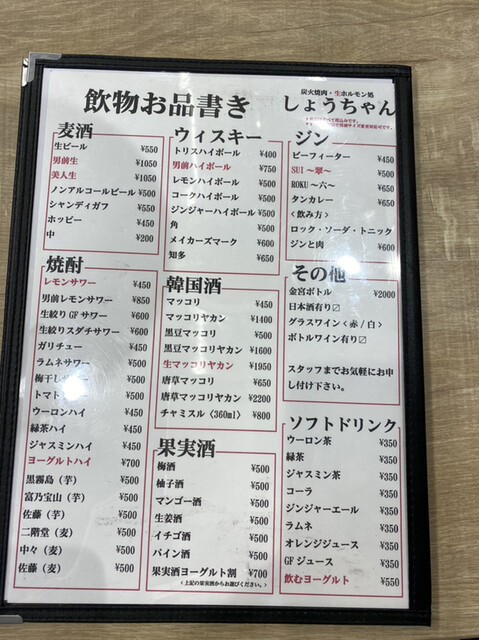 飲物お品書き
炭火焼肉・生ホルモン処
しょうちゃん
麦酒
生ビール ¥550
男前生 ¥1050
美人生 ¥1050
ノンアルコールビール ¥500
シャンディガフ ¥550
ホッピー ¥450
中 ¥200
焼酎
レモンサワー ¥450
男前レモンサワー ¥850
生絞りGFサワー ¥600
生絞りスダチサワー ¥600
ガリチュー ¥450
ラムネサワー ¥500
梅干しサワー ¥500
トマト ¥500
ウーロンハイ ¥450
緑茶ハイ ¥450
ジャスミンハイ ¥450
ヨーグルトハイ ¥700
黒霧島(芋) ¥500
富乃宝山(芋) ¥500
佐藤(芋) ¥500
二階堂(麦) ¥500
中々(麦) ¥500
佐藤(麦) ¥500
ウィスキー
トリスハイボール ¥400
男前ハイボール ¥750
レモンハイボール ¥500
コークハイボール ¥500
ジンジャーハイボール ¥500
角 ¥500
メイカーズマーク ¥600
知多 ¥650
韓国酒
マッコリ ¥450
マッコリヤカン ¥1400
黒豆マッコリ ¥500
黒豆マッコリヤカン ¥1600
生マッコリヤカン ¥1950
唐草マッコリ ¥650
唐草マッコリヤカン ¥2200
チャミスル〈360ml〉 ¥800
果実酒
梅酒 ¥500
柚子酒 ¥500
マンゴー酒 ¥500
生姜酒 ¥500
イチゴ酒 ¥500
パイン酒 ¥500
果実酒ヨーグルト割 ¥700
〈上記の果実酒からお選びください。〉
ジン
ビーフィーター ¥450
SUI ～翠～ ¥500
ROKU ～六～ ¥650
タンカレー ¥650
〈飲み方〉
ロック・ソーダ・トニック
ジンと肉 ¥600
その他
金宮ボトル ¥2000
日本酒有り〼
グラスワイン〈赤/白〉
ボトルワイン有り〼
スタッフまでお気軽にお申
し付け下さい。
ソフトドリンク
ウーロン茶 ¥350
緑茶 ¥350
ジャスミン茶 ¥350
コーラ ¥350
ジンジャーエール ¥350
ラムネ ¥350
オレンジジュース ¥350
GFジュース ¥350
飲むヨーグルト ¥550